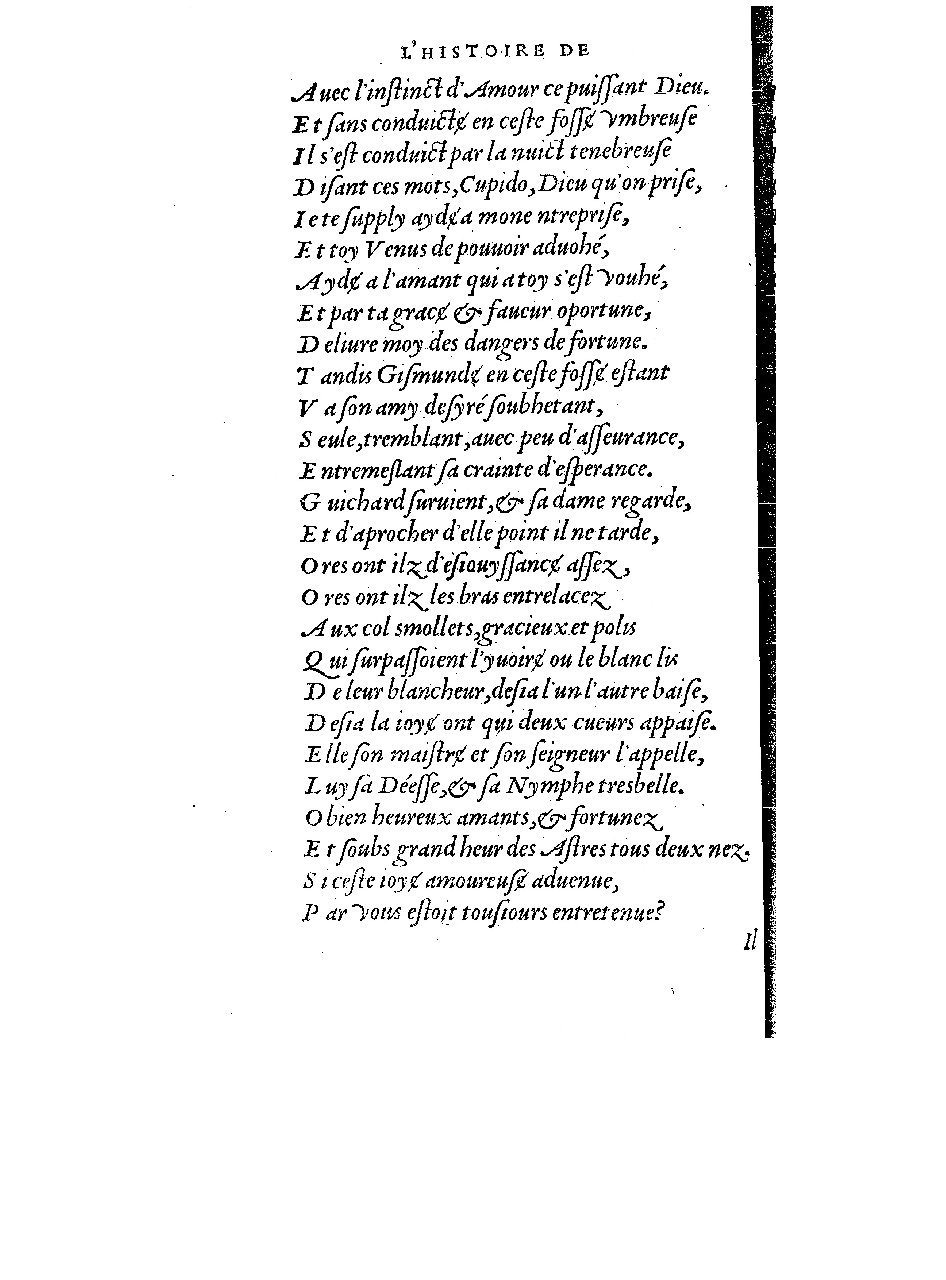 L'HISTOIRE DE
Auec l'inſtinct d'Amour ce puiſſant Dieu.
Et ſans conduictɇ en ceſte foſſɇ vmbreuſe
Il s'eſt conduict par la nuict tenebreuſe
Diſant ces mots, Cupido, Dieu qu'on priſe,
Ie te ſupply aydɇ a mone ntrepriſe,
Et toy Venus de pouuoir aduohé,
Aydɇ a l'amant qui a toy s'eſt vouhé,
Et par ta gracɇ & faueur oportune,
Deliure moy des dangers de fortune.
Tandis Giſmundɇ en ceſte foſſɇ eſtant
Va ſon amy deſyré ſoubhetant,
Seule, tremblant, auec peu d'aſſeurance,
Entremeſlant ſa crainte d'eſperance.
Guichard ſuruient, & ſa dame regarde,
Et d'aprocher d'elle point il ne tarde,
Ores ont ilz d'eſiouyſſancɇ aſſez,
Ores ont ilz les bras entrelacez
Aux col smollets, gracieux et polis
Qui ſurpaſſoient l'yuoirɇ ou le blanc lis
De leur blancheur, deſia l'un l'autre baiſe,
Deſia la ioyɇ ont qui deux cueurs appaiſe.
Elle ſon maiſtrɇ et ſon ſeigneur l'appelle,
Luy ſa Déeſſe, & ſa Nymphe tresbelle.
O bien heureux amants, & fortunez
Et ſoubs grand heur des Aſtres tous deux nez.
Si ceſte ioyɇ amoureuſɇ aduenue,
Par vous eſtoit touſiours entretenue?
Il